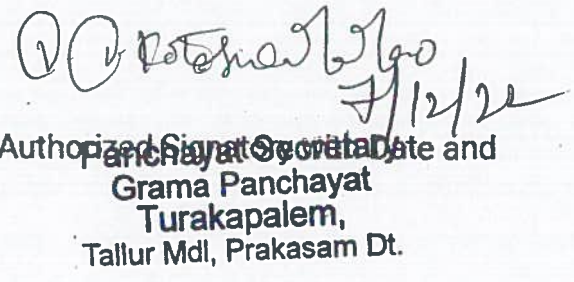 7/12/22
Authorized Signatory with Date and
Panchayat Secretary
Grama Panchayat
Turakapalem,
Tallur Mdl, Prakasam Dt.